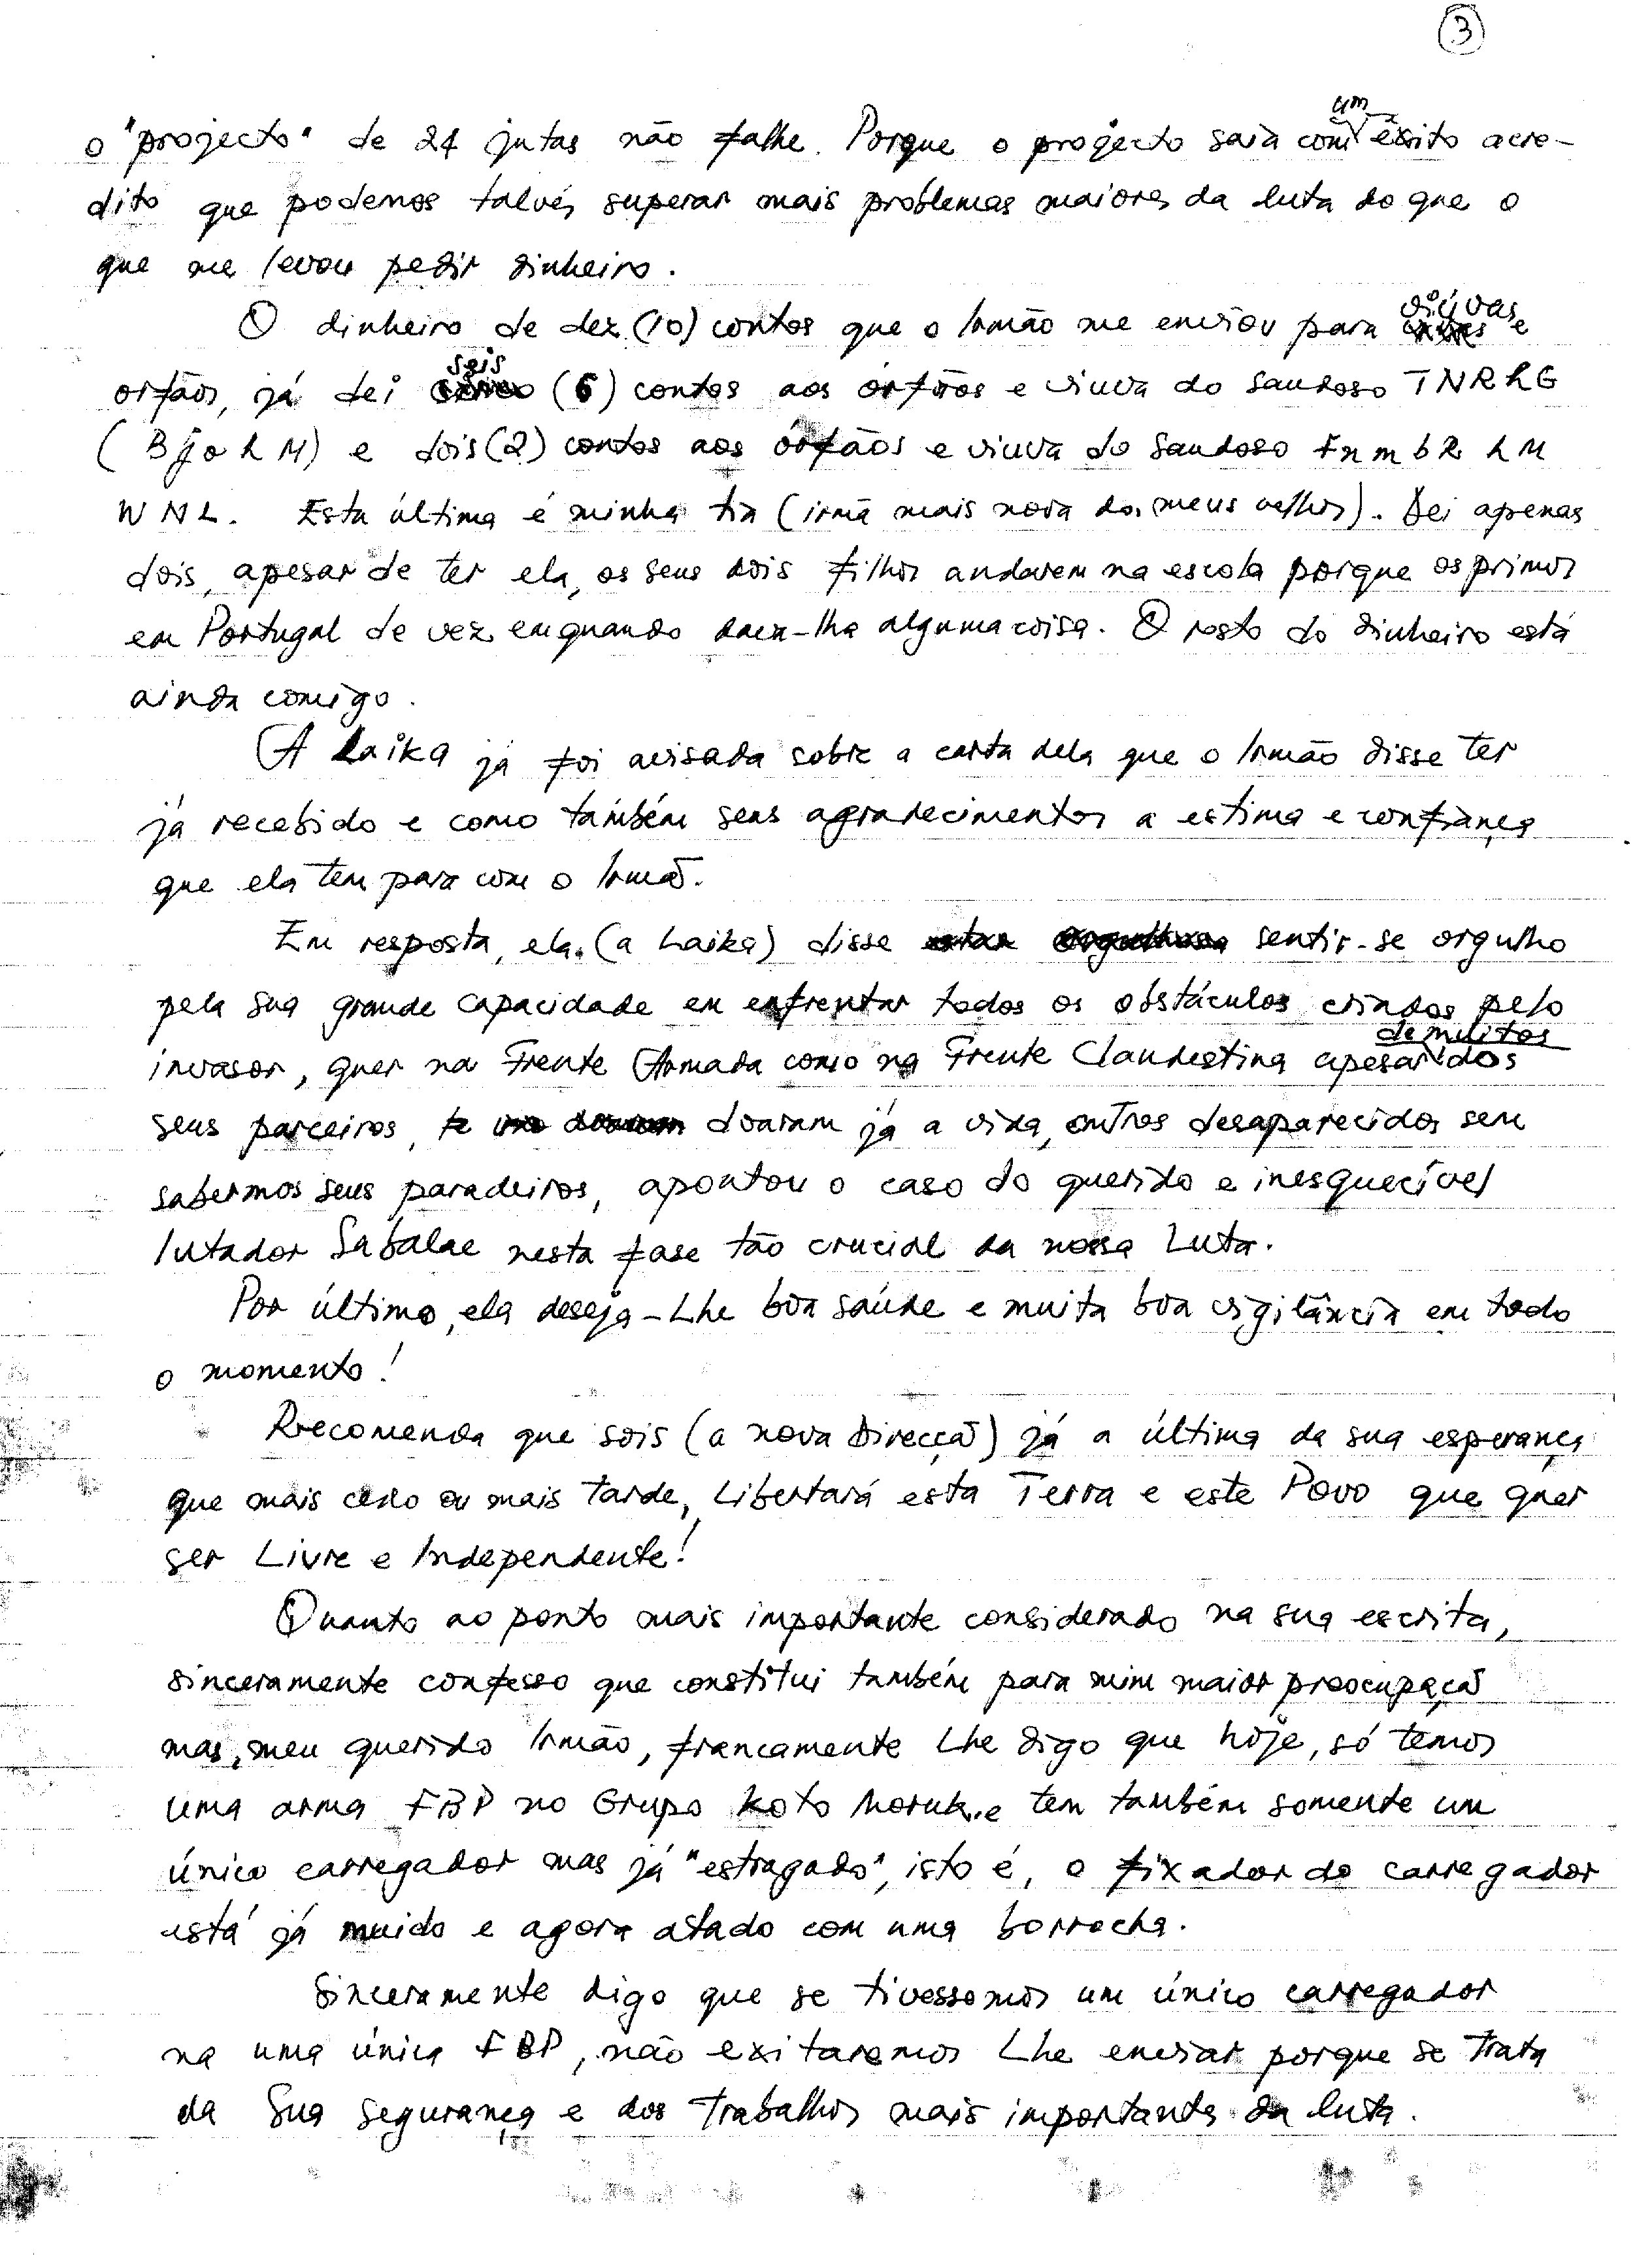 3
o "projecto" de 24 jutas não falhe. Porque o projecto saia com um êxito acre-
dito que podemos talvés superar mais problemas maiores da luta do que o
que me levou pedir dinheiro.
O dinheiro de dez (10) contos que o Irmão me enviou para viúvas e
orfãos, já dei seis (6) contos aos órfãos e viuva do saudoso TNRLG
(BjoLM) e dois (2) contos aos órfãos e viuva do saudoso FnmbR LM
WNL. Esta última é minha tia (irmã mais nova dos meus velhos). Dei apenas
dois, apesar de ter ela, os seus dois filhos andarem na escola porque os primos
em Portugal de vez enquando dar-lha alguma coisa. O resto do dinheiro está
ainda comigo.
A Laika já foi avisada sobre a carta dela que o Irmão disse ter
já recebido e como também seus agradecimentos a estima e confiança
que ela tem para com o Irmão.
Em resposta, ela (a Laika) disse sentir-se orgulho
pela sua grande capacidade em enfrentar todos os obstáculos criados pelo
invasor, quer na Frente Armada como na Frente Clandestina apesar de muitos dos
seus parceiros, doaram já a vida, outros desaparecidos sem
sabermos seus paradeiros, apontou o caso do querido e inesquecível
lutador Sabalae nesta fase tão crucial da nossa Luta.
Por último, ela deseja-Lhe boa saúde e muita boa vigilância em todo
o momento!
Recomenda que sois (a nova Direcção) já a última da sua esperança
que mais cedo ou mais tarde, Libertará esta Terra e este Povo que quer
ser Livre e Independente!
Quanto ao ponto mais importante considerado na sua escrita,
sinceramente confesso que constitui também para mim maior preocupação
mas, meu querido Irmão, francamente Lhe digo que hoje, só temos
uma arma FBP no Grupo Koto Moruk e tem também somente um
único carregador mas já "estragado", isto é, o fixador do carregador
está já muido e agora atado com uma borracha.
Sinceramente digo que se tivessemos um único carregador
na uma única FBP, não exitaremos Lhe enviar porque se trata
da Sua segurança e dos Trabalhos mais importantes da luta.